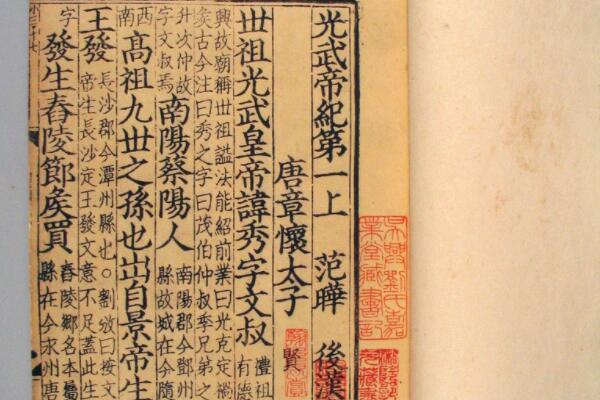 光武帝紀第一上 范曄 後漢
唐章懷太子賢
丗祖光武皇帝諱秀字文叔 禮祖
有德
興故廟稱丗祖謚法能紹前業曰光克定禍
矦古今注曰秀之字曰茂伯仲叔季兄弟之
升次仲故
字文叔焉
南陽蔡陽人
南陽郡今鄧州
縣故城在今隨
西
南
高祖九丗之孫也出自景帝生
王發
長沙郡今潭州縣也○劉攽曰按文
帝生長沙定王發文意不足蓋此生
字
發生舂陵節矦買
舂陵鄉名本屬
縣在今永州唐
吳興劉氏嘉
業堂藏書記